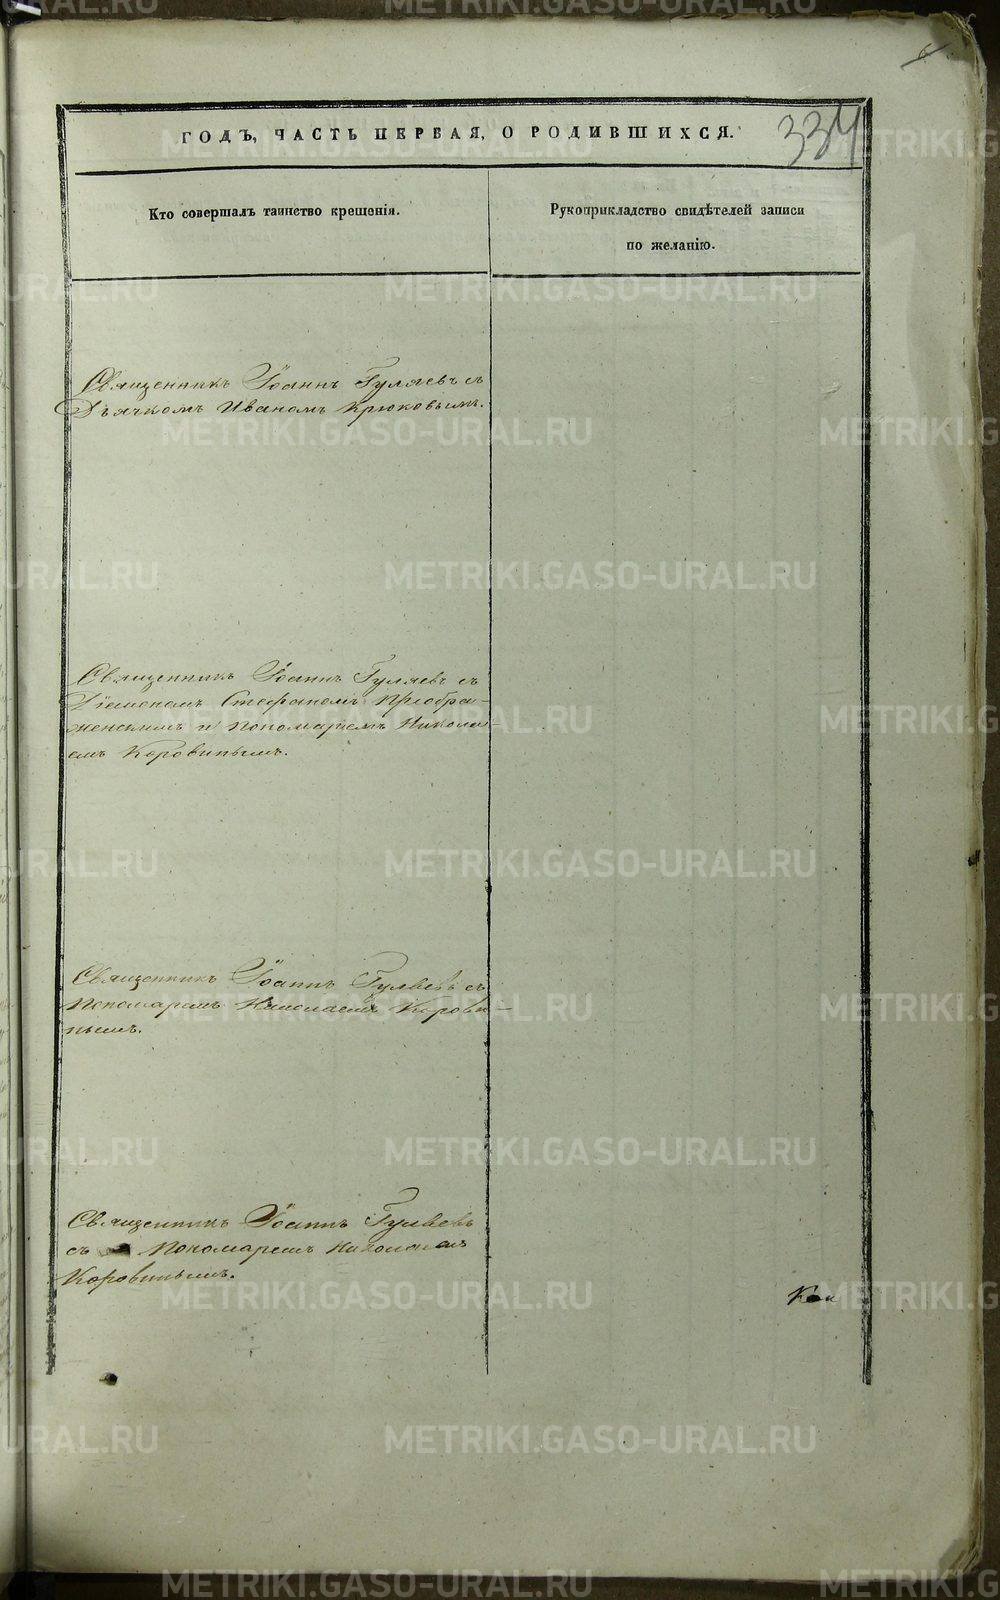 6
ГОДЪ, ЧАСТЬ ПЕРВАЯ, О РОДИВШИХСЯ.
334
Кто совершалъ таинство крещенія.
Рукоприкладство свидѣтелей записи
по желанію.
Священникъ Іоаннъ Гуляевъ съ
Дьячкомъ Иваномъ Крюковымъ.
Священникъ Іоаннъ Гуляевъ съ
Діакономъ Стефаномъ Преобра-
женскимъ и Пономаремъ Никола-
емъ Коровинымъ.
Священникъ Іоаннъ Гуляевъ съ
Пономаремъ Николаемъ Корови-
нымъ.
Священникъ Іоаннъ Гуляевъ
съ Пономаремъ Николаемъ
Коровинымъ.
METRIKI.GASO-URAL.RU